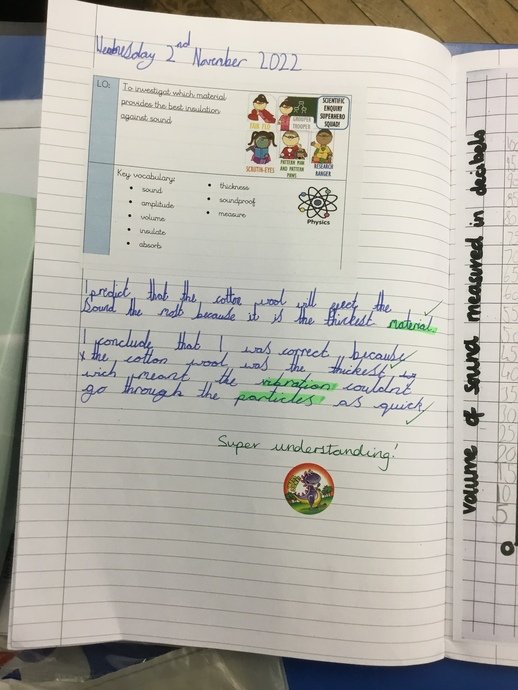 Wednesday 2nd November 2022
LO:
To investigat which material
provides the best insulation
against sound.
FAIR FLO
GROUPER
TROOPER
SCIENTIFIC
ENQUIRY
SUPERHERO
SQUAD!
SCRUTIN-EYES
PATTERN MAN
AND PATTERN
PAWS
RESEARCH
RANGER
Key vocabulary:
sound
amplitude
volume
insulate
absorb
thickness
soundproof
measure
Physics
I predict that the cotton wool will the
Sound the most because it is the thickest material
I conclude that I was correct because
the cotton wool was the thickest
wich meant the vibration couldn't
go through the particles as quick
Super understanding!
volume of sound measured in decibels
0